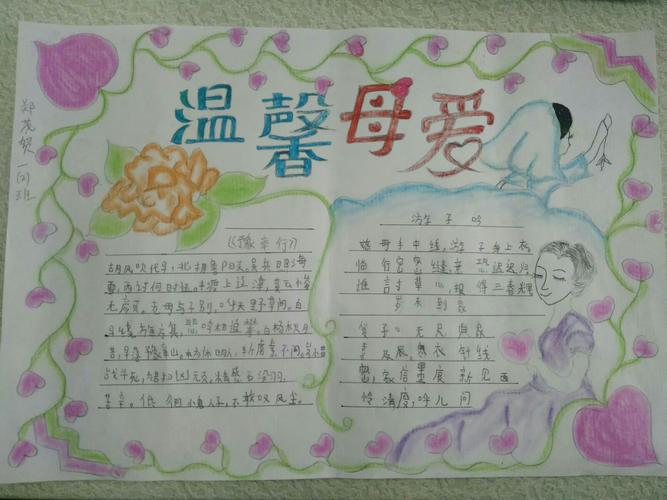 温馨母爱
郑茂贺 一(2)班
《豫章行》
胡风吹代马,北拥鲁阳关。吴兵照海
雪,西讨何时还。半渡上辽津,黄云惨
无颜。老母与子别,呼天野草间。白
马绕旌旗,悲鸣相追攀。白杨秋月
苦,早落豫章山。本为休明人,斩虏素不闲。岂惜
战斗死,
游子吟
慈母手中线,游子身上衣
临行密密缝,意恐迟迟归
谁言寸草心,报得三春晖
岁末到家
爱子心无尽 归家
喜及辰 寒衣针线
密,家信墨痕新 见面
怜清瘦,呼儿问